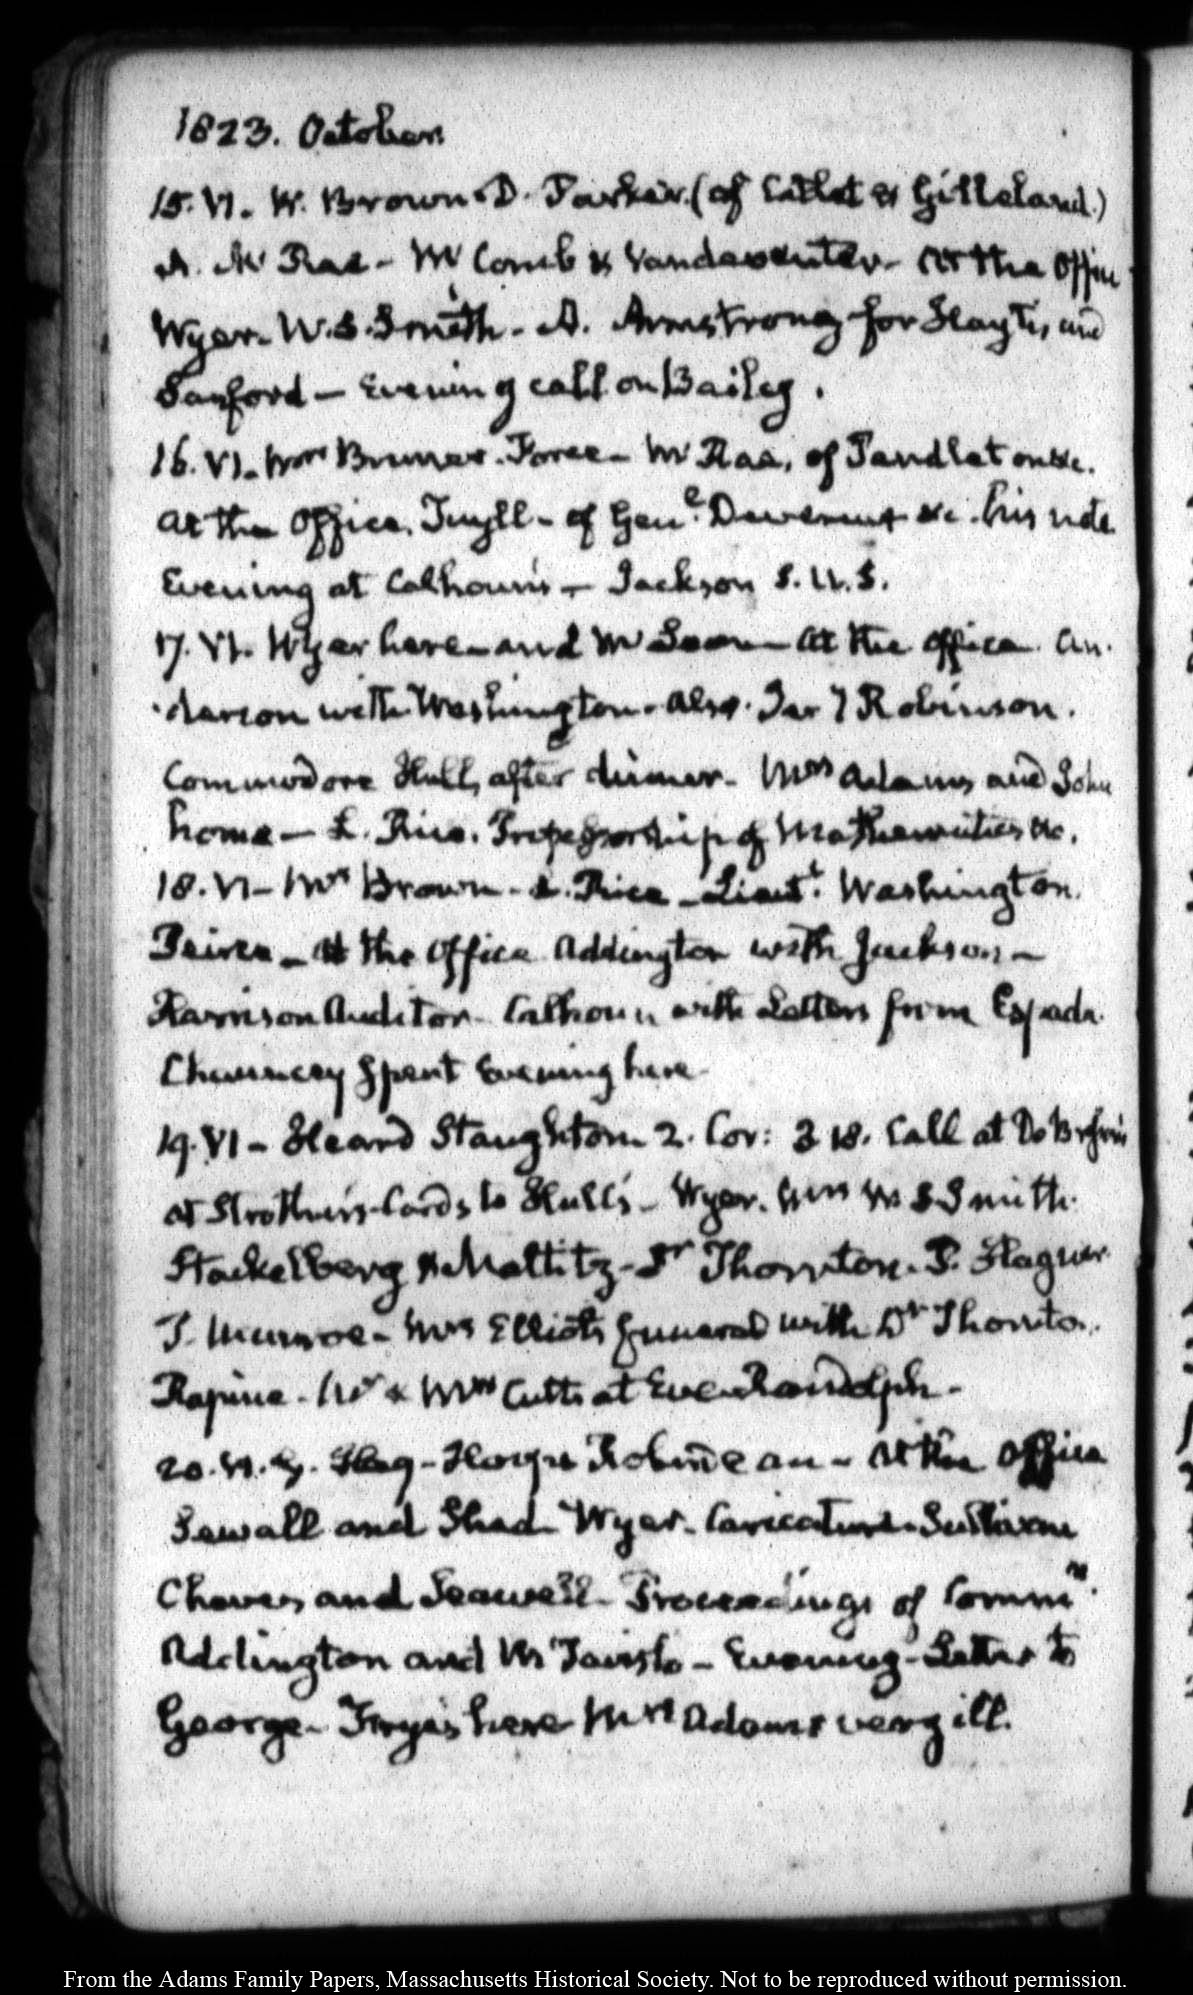 1823. October.
15. VI. W. Brown. D. Parker. (of Catlet & Gilleland.)
A. Mc Rae - Mc Comb & Vandeventer - At the Office
Wyer. W. S. Smith - A. Armstrong for Hayti, and
Sanford - Evening call on Bailey.
16. VI. Force - Mc Rae, of Pendleton &c.
at the Office, Tuyll - of Genl. Devereux &c. his note.
Evening at Calhoun's - Jackson S. U. S.
17. VI. Wyer here - and - At the office. An-
derson with Washington. Also. Robinson.
Commodore Hull, after dinner. Mrs Adams and John
home - L. Rice. Professorship of Mathematics &c.
18. VI - Mr Brown - L. Rice - Lieutt. Washington.
At the Office Addington with Jackson -
Harrison Auditor - Calhoun with Letters from
Chauncey Spent Evening here
19. VI - Heard Staughton 2. Cor: 3 18. Call at
at Strother's. Cards to Hull's - Wyer. Mrs W S Smith.
Stackelberg & Maltitz - Dr Thornton. P. Hagner
T. Munroe - Mrs Elliot's funeral with Dr Thornton.
Rapine - Mr & Mrs Cutts at Eve. Randolph -
20. VI. G. Hay - At the Office
Sewall and Wyer. Caricature. Sullivan
Cheves and Seawell - Proceedings of Commn.
Addington and - Evening - Letter to
George - Frye's here Mrs Adams very ill.
From the Adams Family Papers, Massachusetts Historical Society. Not to be reproduced without permission.